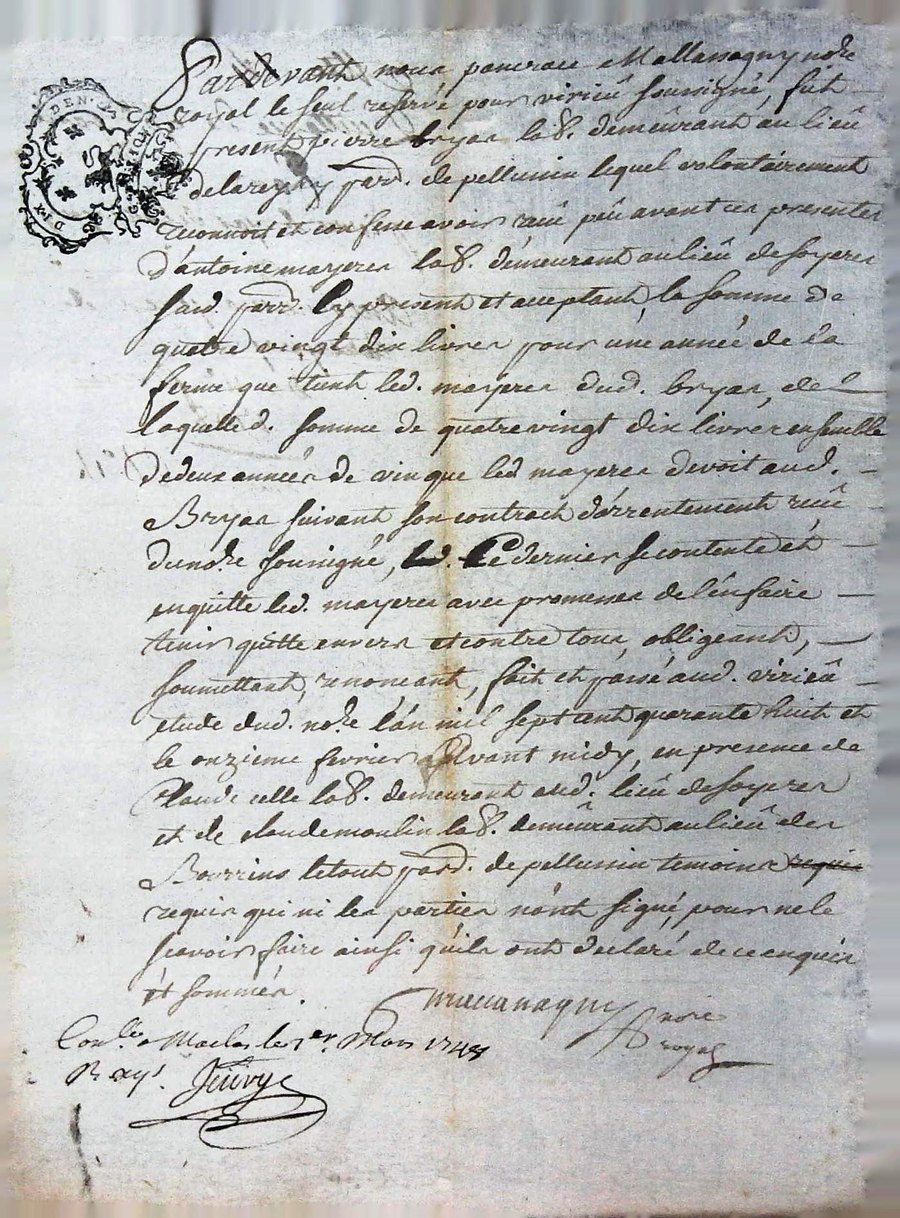 Pardevant nous pancrace Mallanagny no.re
royal le seul reservé pour virieû soussigné, fut
present pierre bryas lab.r demeûrant au lieû
de lareyny parr. de pellussin lequel volontairement
reconnoit et confesse avoir reçû peû avant ces presentes
d'antoine mayeres lab.r demeurant au lieû de soyeres
susd. parr. Cy present et acceptant, la somme de
quatre vingt dix livres pour une année de la
ferme que tient led. mayeres dud. bryas, de
laquelle d. somme de quatre vingt dix livres ensemble
de deux années de vin que led mayeres devoit aud.
Bryas suivant son contract d'arrentement reçû
du no.re soussigné, Ce dernier se contente et
en quitte led. mayeres avec promesses de l'en faire
tenir quitte envers et contre tous, obligeant,
soumettant, renonceant, fait et passé aud. virieû
etude dud. no.re l'an mil sept cent quarante huit et
le onzieme fevrier avant midy, en presence de
Claude celle lab.r demeurant aud. lieû de soyeres
et de claude moulin lab.r demeûrant au lieû des
Bourrins le tout parr. de pellussin temoins requis
requis qui ni les parties n'ont signé, pour ne le
scavoir faire ainsi qu'ils ont declaré de ce enquis
et sommés.
Mallanagny no.re
royal
Con.lé a Maclas le 1.er Mars 1748
R xij s.